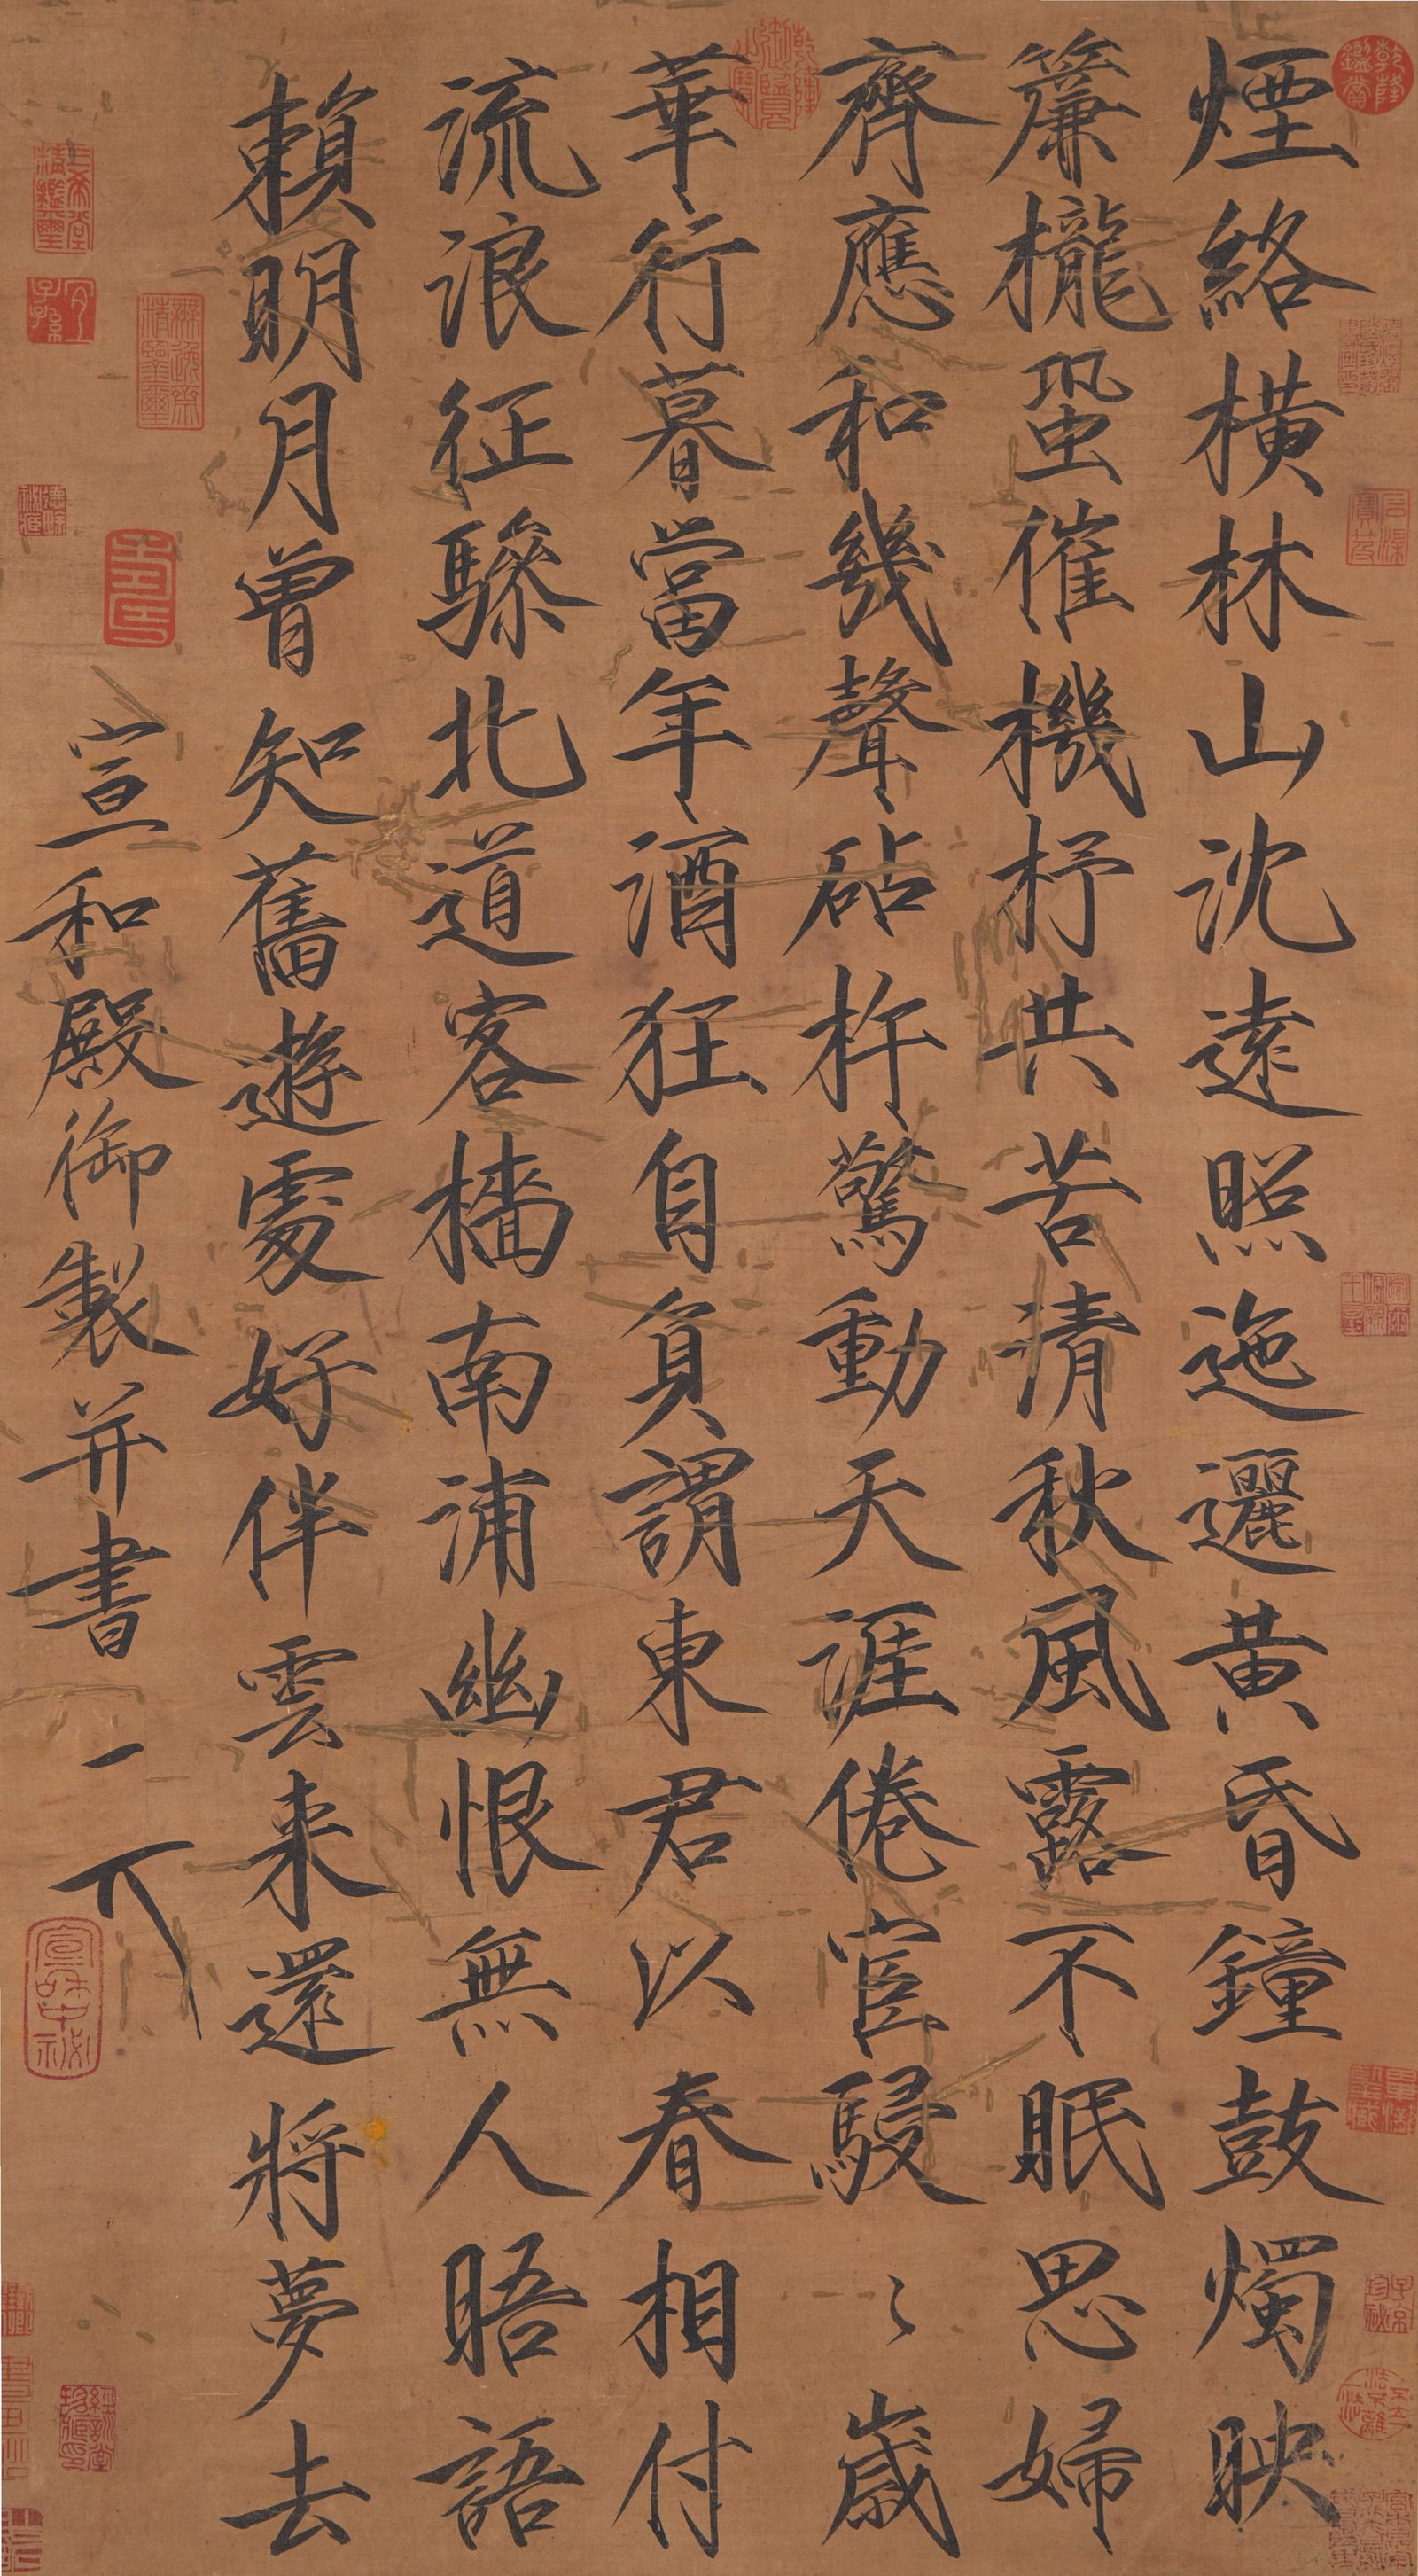 煙絡橫林山沈遠照迤邐黃昏鐘鼓燭映
簾櫳蛩催機杼共苦清秋風露不眠思婦
齊應和幾聲砧杵驚動天涯倦宦駸〻歲
華行暮當年酒狂自負謂東君以春相付
流浪征驂北道客檣南浦幽恨無人晤語
賴明月曾知舊遊處好伴雲來還將夢去
宣和殿御製并書
乾隆鑑賞